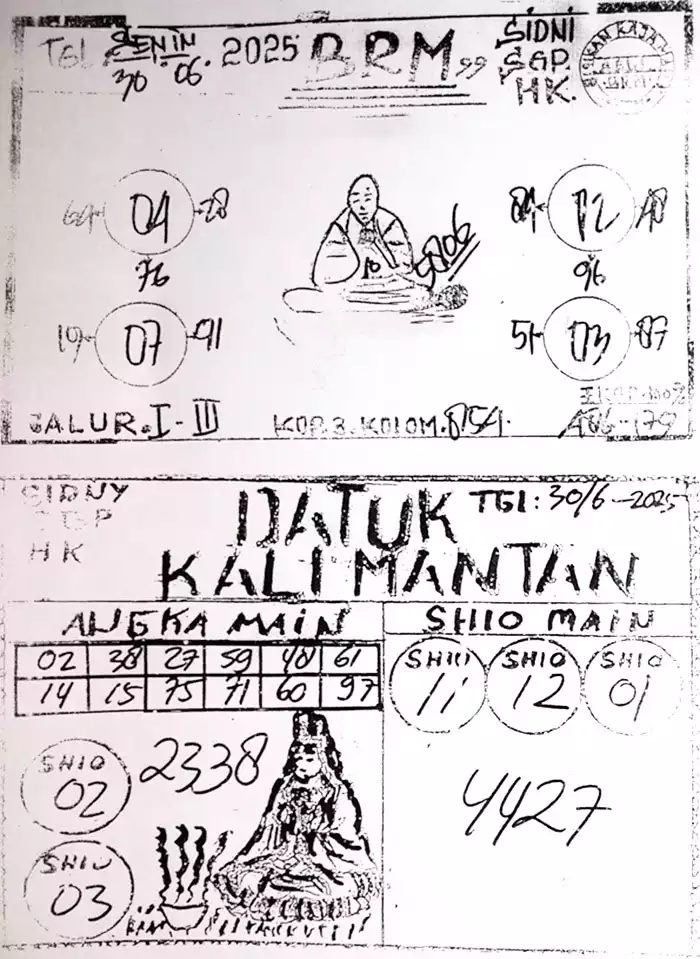 TGL SENIN 30.06.2025 BRM,,
SIDNI
SGP.
HK.
04 28
76
19 07 91
5806
84 12 48
96
51 03 87
JALUR.I-III
KOP.3.KOLOM.854.
SIDNY
SGP
HK
DATUK
KALIMANTAN
TGL:30/6-2025
ANGKA MAIN
02 38 27 59 48 61
14 15 75 71 60 97
SHIO MAIN
SHIO 11
SHIO 12
SHIO 01
SHIO 02
2338
SHIO 03
4427